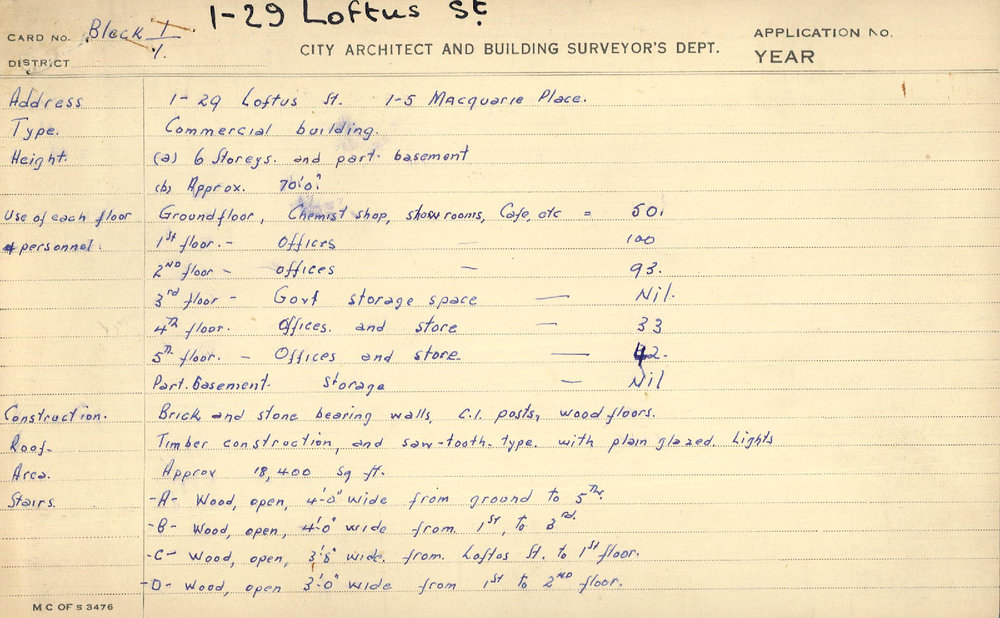 1-29 Loftus St.
CARD NO. Block I
1.
DISTRICT
CITY ARCHITECT AND BUILDING SURVEYOR'S DEPT.
APPLICATION No.
YEAR
Address 1-29 Loftus St. 1-5 Macquarie Place.
Type. Commercial building.
Height. (a) 6 Storeys. and part. basement
(b) Approx. 70'.0".
Use of each floor Ground floor, Chemist shop, showrooms, Cafe, etc = 50.
& personnel. 1st floor. - Offices — 100
2ND floor - offices — 93.
3rd floor - Govt storage space — Nil.
4Th floor. Offices. and store — 33
5Th floor. - Offices and store. — 42.
Part. Basement. Storage — Nil
Construction. Brick and stone bearing walls, C.I. posts, wood floors.
Roof. Timber construction, and saw-tooth-type. with plain glazed. Lights
Area. Approx 18,400 sq ft.
Stairs. -A- Wood, open, 4'-0" wide from ground to 5Th.
-B- Wood, open, 4'-0" wide from 1st, to 3rd.
-C- Wood, open, 3'-8" wide. from. Loftus St. to 1st floor.
-D- Wood, open 3'-0" wide from 1st to 2ND floor.
M C OF S 3476